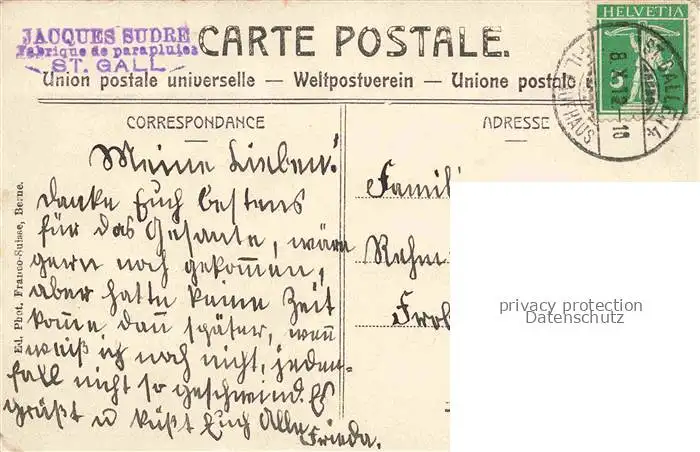 JACQUES SUDRE
Fabrique de parapluies
ST. GALL
CARTE POSTALE.
Union postale universelle — Weltpostverein — Unione postale
HELVETIA
ST. GALLEN 1
8.X.12-10
KAUFHAUS
CORRESPONDANCE
ADRESSE
Meine Lieben!
Danke Euch bestens
für das Gesante, wäre
gern noch gekommen,
aber hatte keine Zeit
komme dann später, wenn
weiß ich noch nicht, jeden-
fall nicht so geschwind. Es
grüßt u küßt Euch Alle
Frieda.
Famil
Rehm
Froh
Ed. Phot. Franco-Suisse, Berne.
privacy protection
Datenschutz